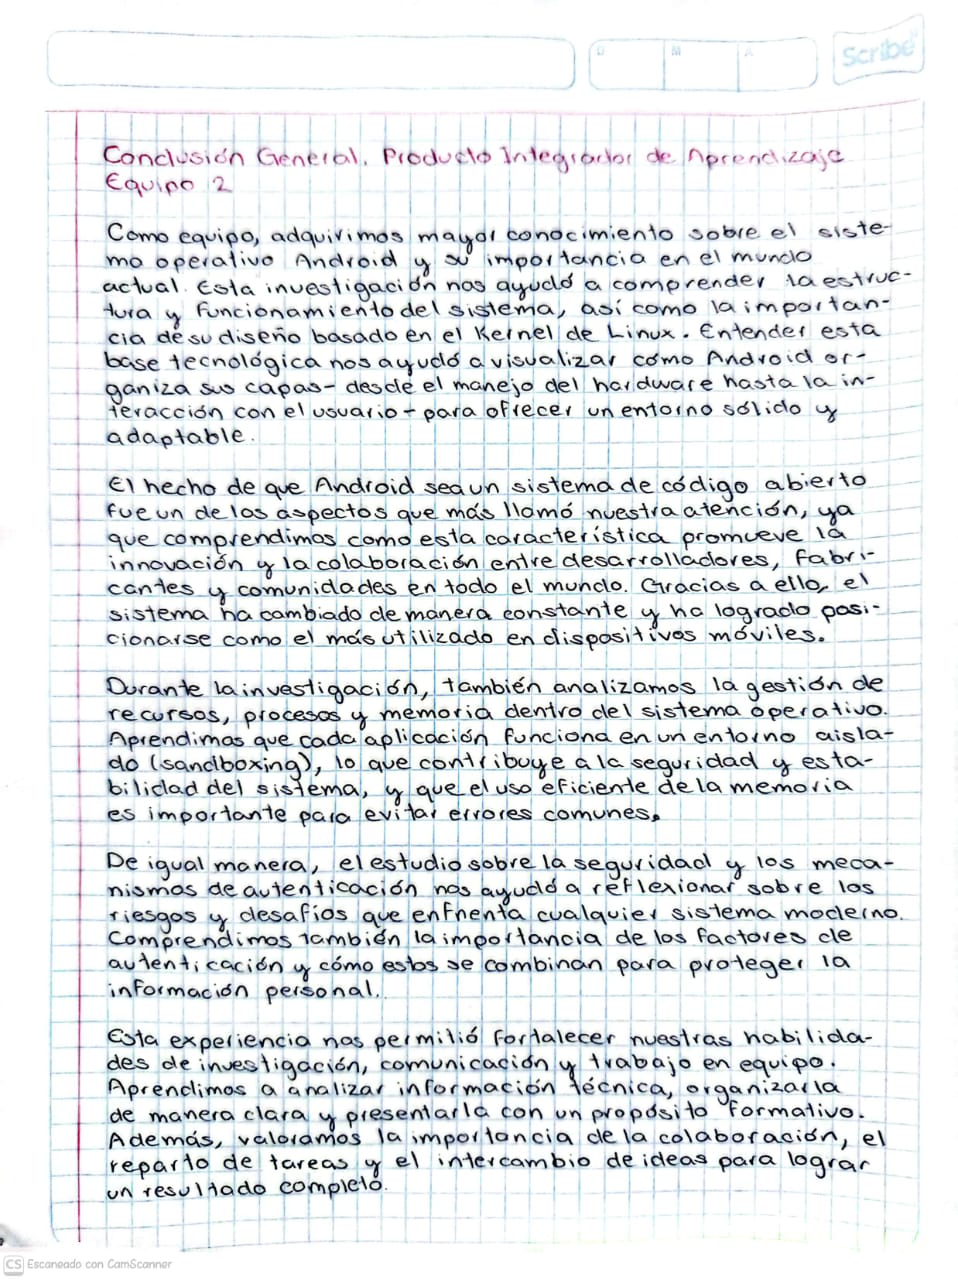 D
M
A
Scribe
Conclusión General. Producto Integrador de Aprendizaje
Equipo 2
Como equipo, adquirimos mayor conocimiento sobre el siste-
ma operativo Android y su importancia en el mundo
actual. Esta investigación nos ayudó a comprender la estruc-
tura y funcionamiento del sistema, así como la importan-
cia de su diseño basado en el Kernel de Linux. Entender esta
base tecnológica nos ayudó a visualizar cómo Android or-
ganiza sus capas - desde el manejo del hardware hasta la in-
teracción con el usuario - para ofrecer un entorno sólido y
adaptable.
El hecho de que Android sea un sistema de código abierto
fue un de los aspectos que más llamó nuestra atención, ya
que comprendimos como esta característica promueve la
innovación y la colaboración entre desarrolladores, fabri-
cantes y comunidades en todo el mundo. Gracias a ello, el
sistema ha cambiado de manera constante y ha logrado posi-
cionarse como el más utilizado en dispositivos móviles.
Durante la investigación, también analizamos la gestión de
recursos, procesos y memoria dentro del sistema operativo.
Aprendimos que cada aplicación funciona en un entorno aisla-
do (sandboxing), lo que contribuye a la seguridad y esta-
bilidad del sistema, y que el uso eficiente de la memoria
es importante para evitar errores comunes.
De igual manera, el estudio sobre la seguridad y los meca-
nismos de autenticación nos ayudó a reflexionar sobre los
riesgos y desafíos que enfrenta cualquier sistema moderno.
Comprendimos también la importancia de los factores de
autenticación y cómo estos se combinan para proteger la
información personal.
Esta experiencia nos permitió fortalecer nuestras habilida-
des de investigación, comunicación y trabajo en equipo.
Aprendimos a analizar información técnica, organizarla
de manera clara y presentarla con un propósito formativo.
Además, valoramos la importancia de la colaboración, el
reparto de tareas y el intercambio de ideas para lograr
un resultado completo.
CS Escaneado con CamScanner